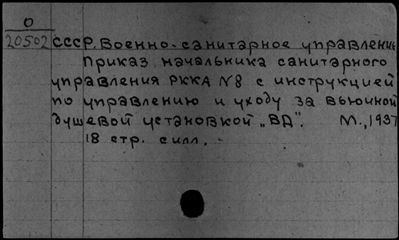 0
20502 СССР. Военно-санитарное управление
Приказ начальника санитарного
управления РККА №8 с инструкцией
по управлению и уходу за вьючной
душевой установкой „ВД". М., 1937
18 стр. с илл.